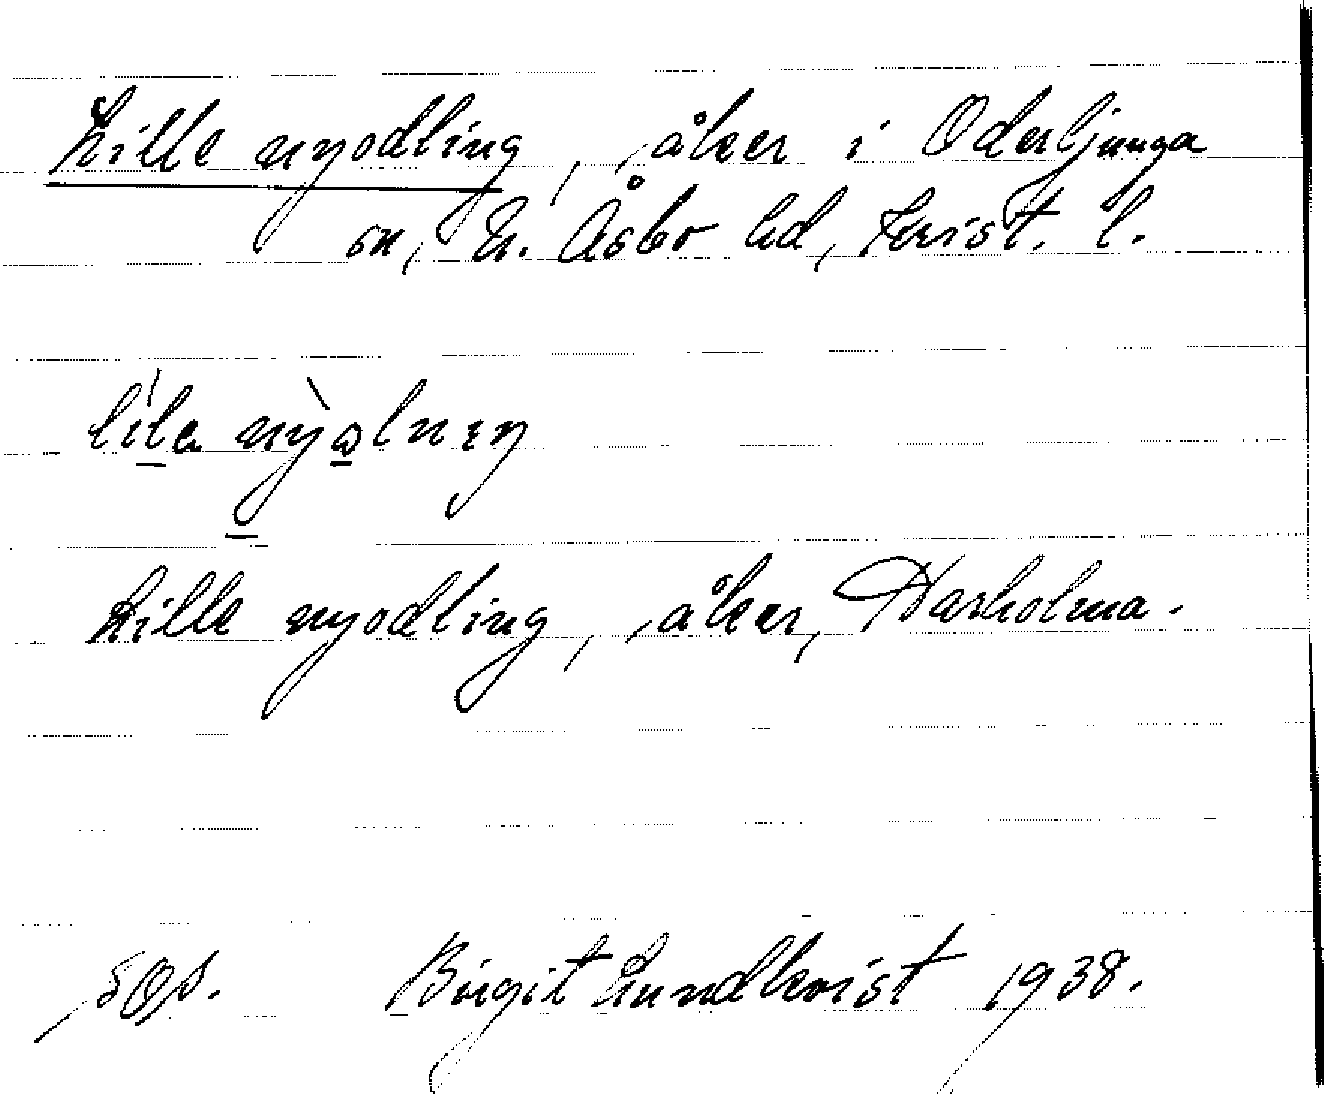 Lille nyodling, åker i Oderljunga
sn, N. Åsbo hd, Krist. l.
Lille nyodling, åker, Harholma.
Birgit Lundkvist 1938.